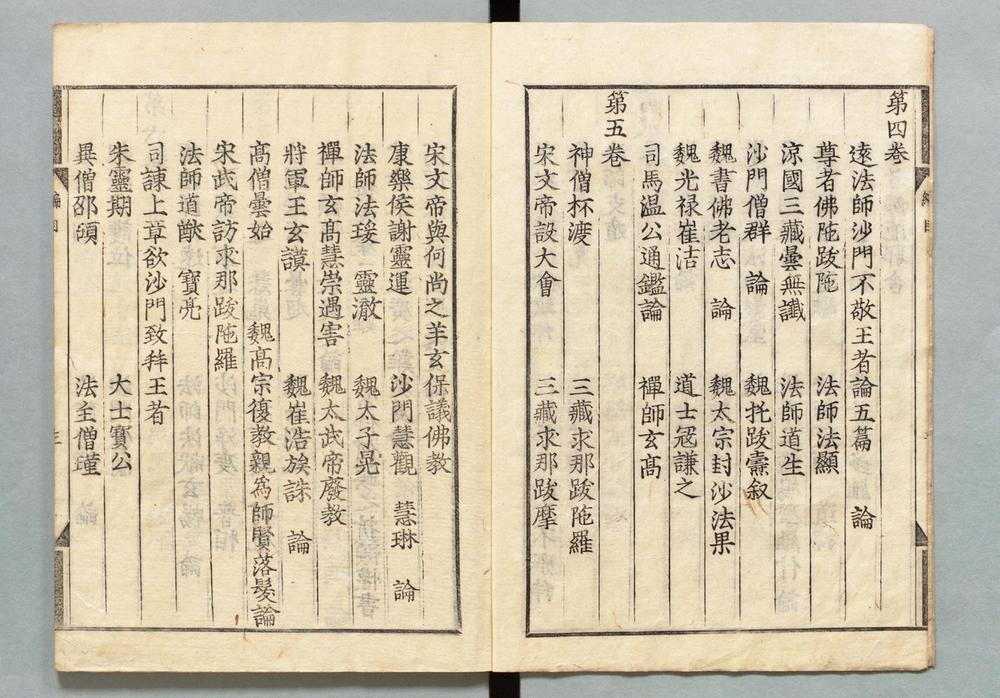 第四卷
遠法師沙門不敬王者論五篇 論
尊者佛陁跋陁 法師法顯
涼國三藏曇無讖 法師道生
沙門僧群 論 魏托跋燾叙
魏書佛老志 論 魏太宗封沙法果
魏光禄崔洁 道士冦謙之
司馬温公通鑑論 禪師玄髙
第五卷
神僧杯渡 三藏求那跋陁羅
宋文帝設大會 三藏求那跋摩
宋文帝與何尚之羊玄保議佛教
康樂侯謝靈運 沙門慧觀 慧琳 論
法師法瑗 靈澈 魏太子晃
禪師玄髙慧崇遇害 魏太武帝廢教
將軍王玄謨 魏崔浩族誅 論
髙僧曇始 魏髙宗復教親為師賢落髮論
宋武帝訪求那跋陁羅
法師道猷 寶亮
司諫上章欲沙門致拜王者
朱靈期 大士寶公
異僧邵碩 法主僧瑾